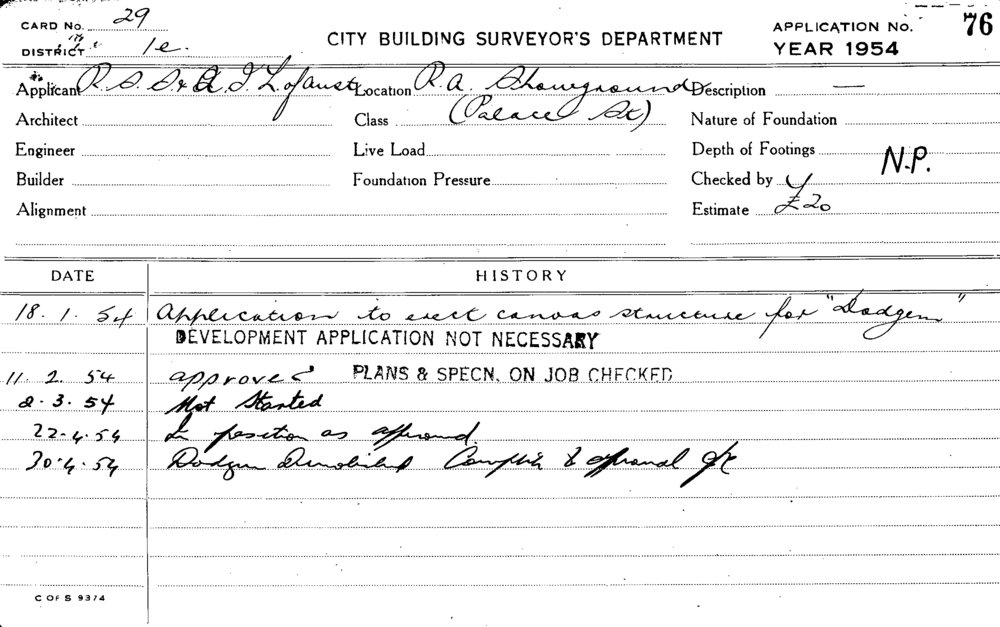 CARD No. 29
DISTRICT 1e.
CITY BUILDING SURVEYOR'S DEPARTMENT
APPLICATION No. 76
YEAR 1954
Applicant R. S. S. & A. J. Lofaust Location R.A. Showground Description —
Architect Class (Palace St) Nature of Foundation
Engineer Live Load Depth of Footings N.P.
Builder Foundation Pressure Checked by
Alignment Estimate £20
DATE HISTORY
18.1.54 Application to erect canvas structure for "Dodgem"
DEVELOPMENT APPLICATION NOT NECESSARY
11.2.54 approved PLANS & SPECN. ON JOB CHECKED
2.3.54 Not Started
22.4.54 In position as approved.
30.4.54 Dodgem Demolished
C OF S 9374